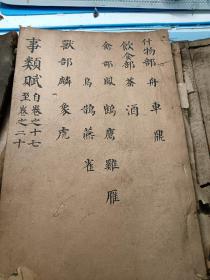 什物部 舟 車 鼎
飲食部 茶 酒
禽部 鳳 鶴 鷹 雞 雁
烏 鵲 燕 雀
獸部 麟 象 虎
事類賦 自卷之十七
至卷之二十